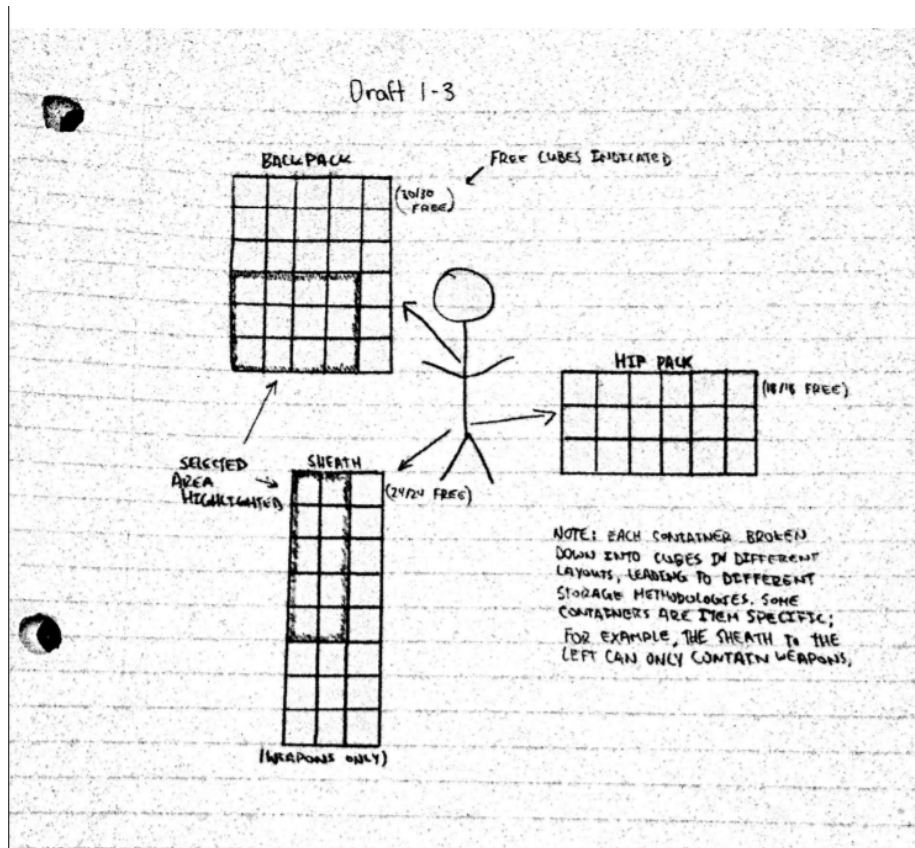 Draft 1-3
BACKPACK
FREE CUBES INDICATED
(30/30
FREE)
HIP PACK
(18/18 FREE)
SELECTED
AREA
HIGHLIGHTED
SHEATH
(24/24 FREE)
(WEAPONS ONLY)
NOTE: EACH CONTAINER BROKEN
DOWN INTO CUBES IN DIFFERENT
LAYOUTS, LEADING TO DIFFERENT
STORAGE METHODOLOGIES. SOME
CONTAINERS ARE ITEM SPECIFIC;
FOR EXAMPLE, THE SHEATH TO THE
LEFT CAN ONLY CONTAIN WEAPONS.